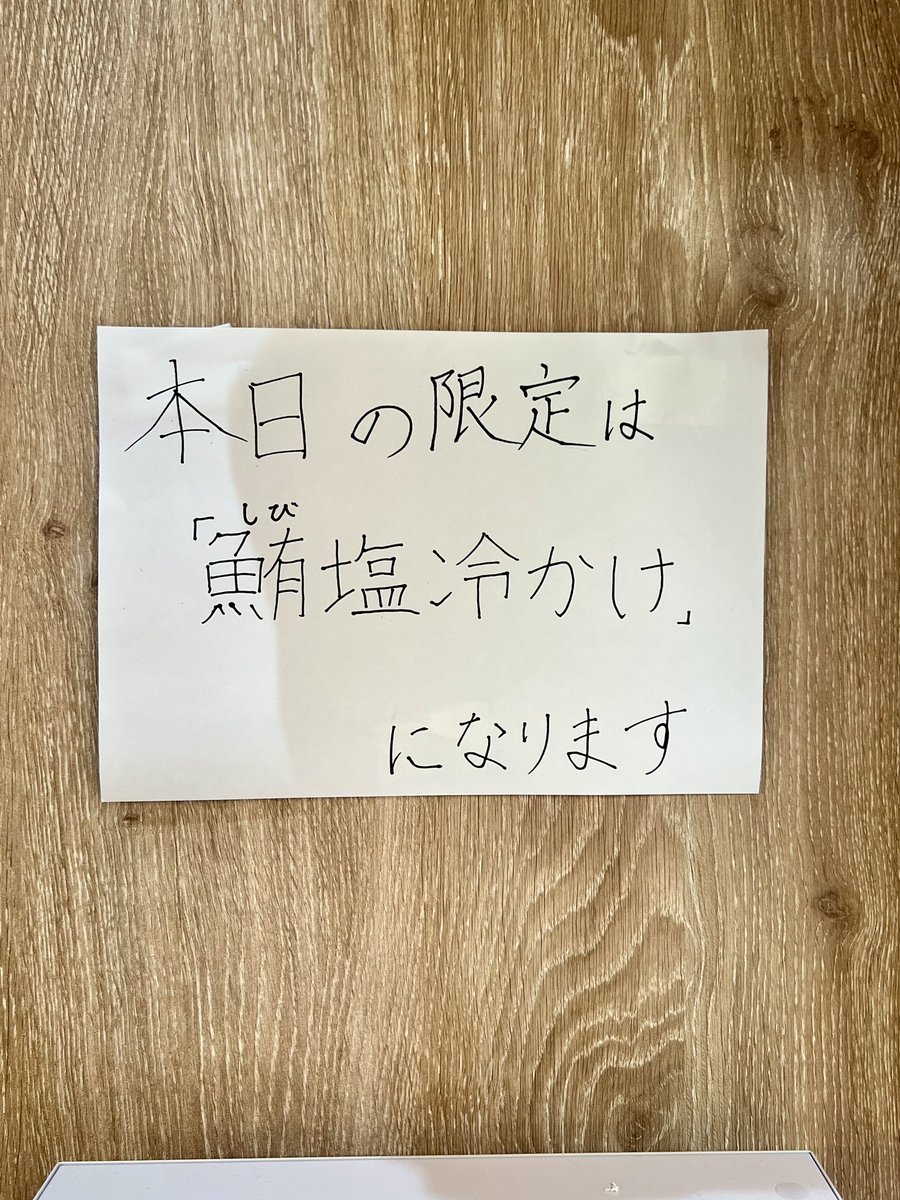 本日の限定は
しび
「鮪塩冷かけ」
になります